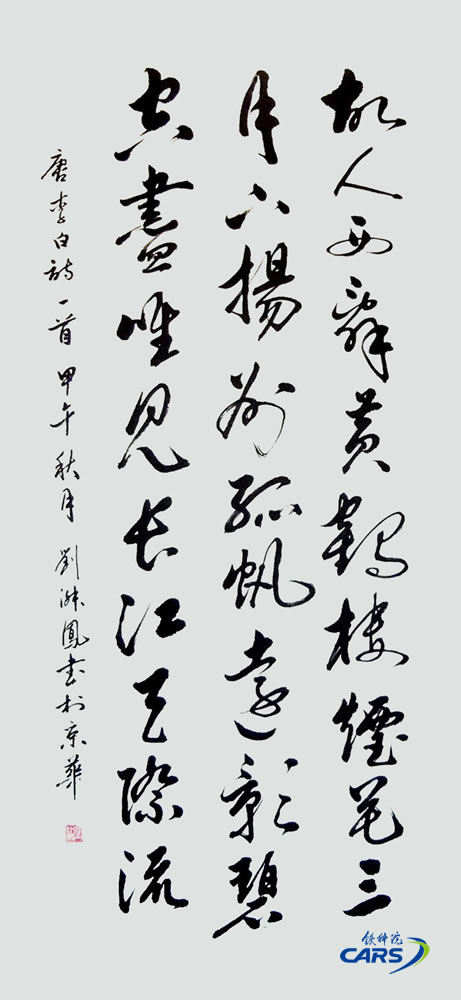 故人西辭黃鶴樓煙花三
月下揚州孤帆遠影碧
空盡唯見長江天際流
唐李白詩一首 甲午秋月 劉淑鳳書於京華
铁科院
CARS